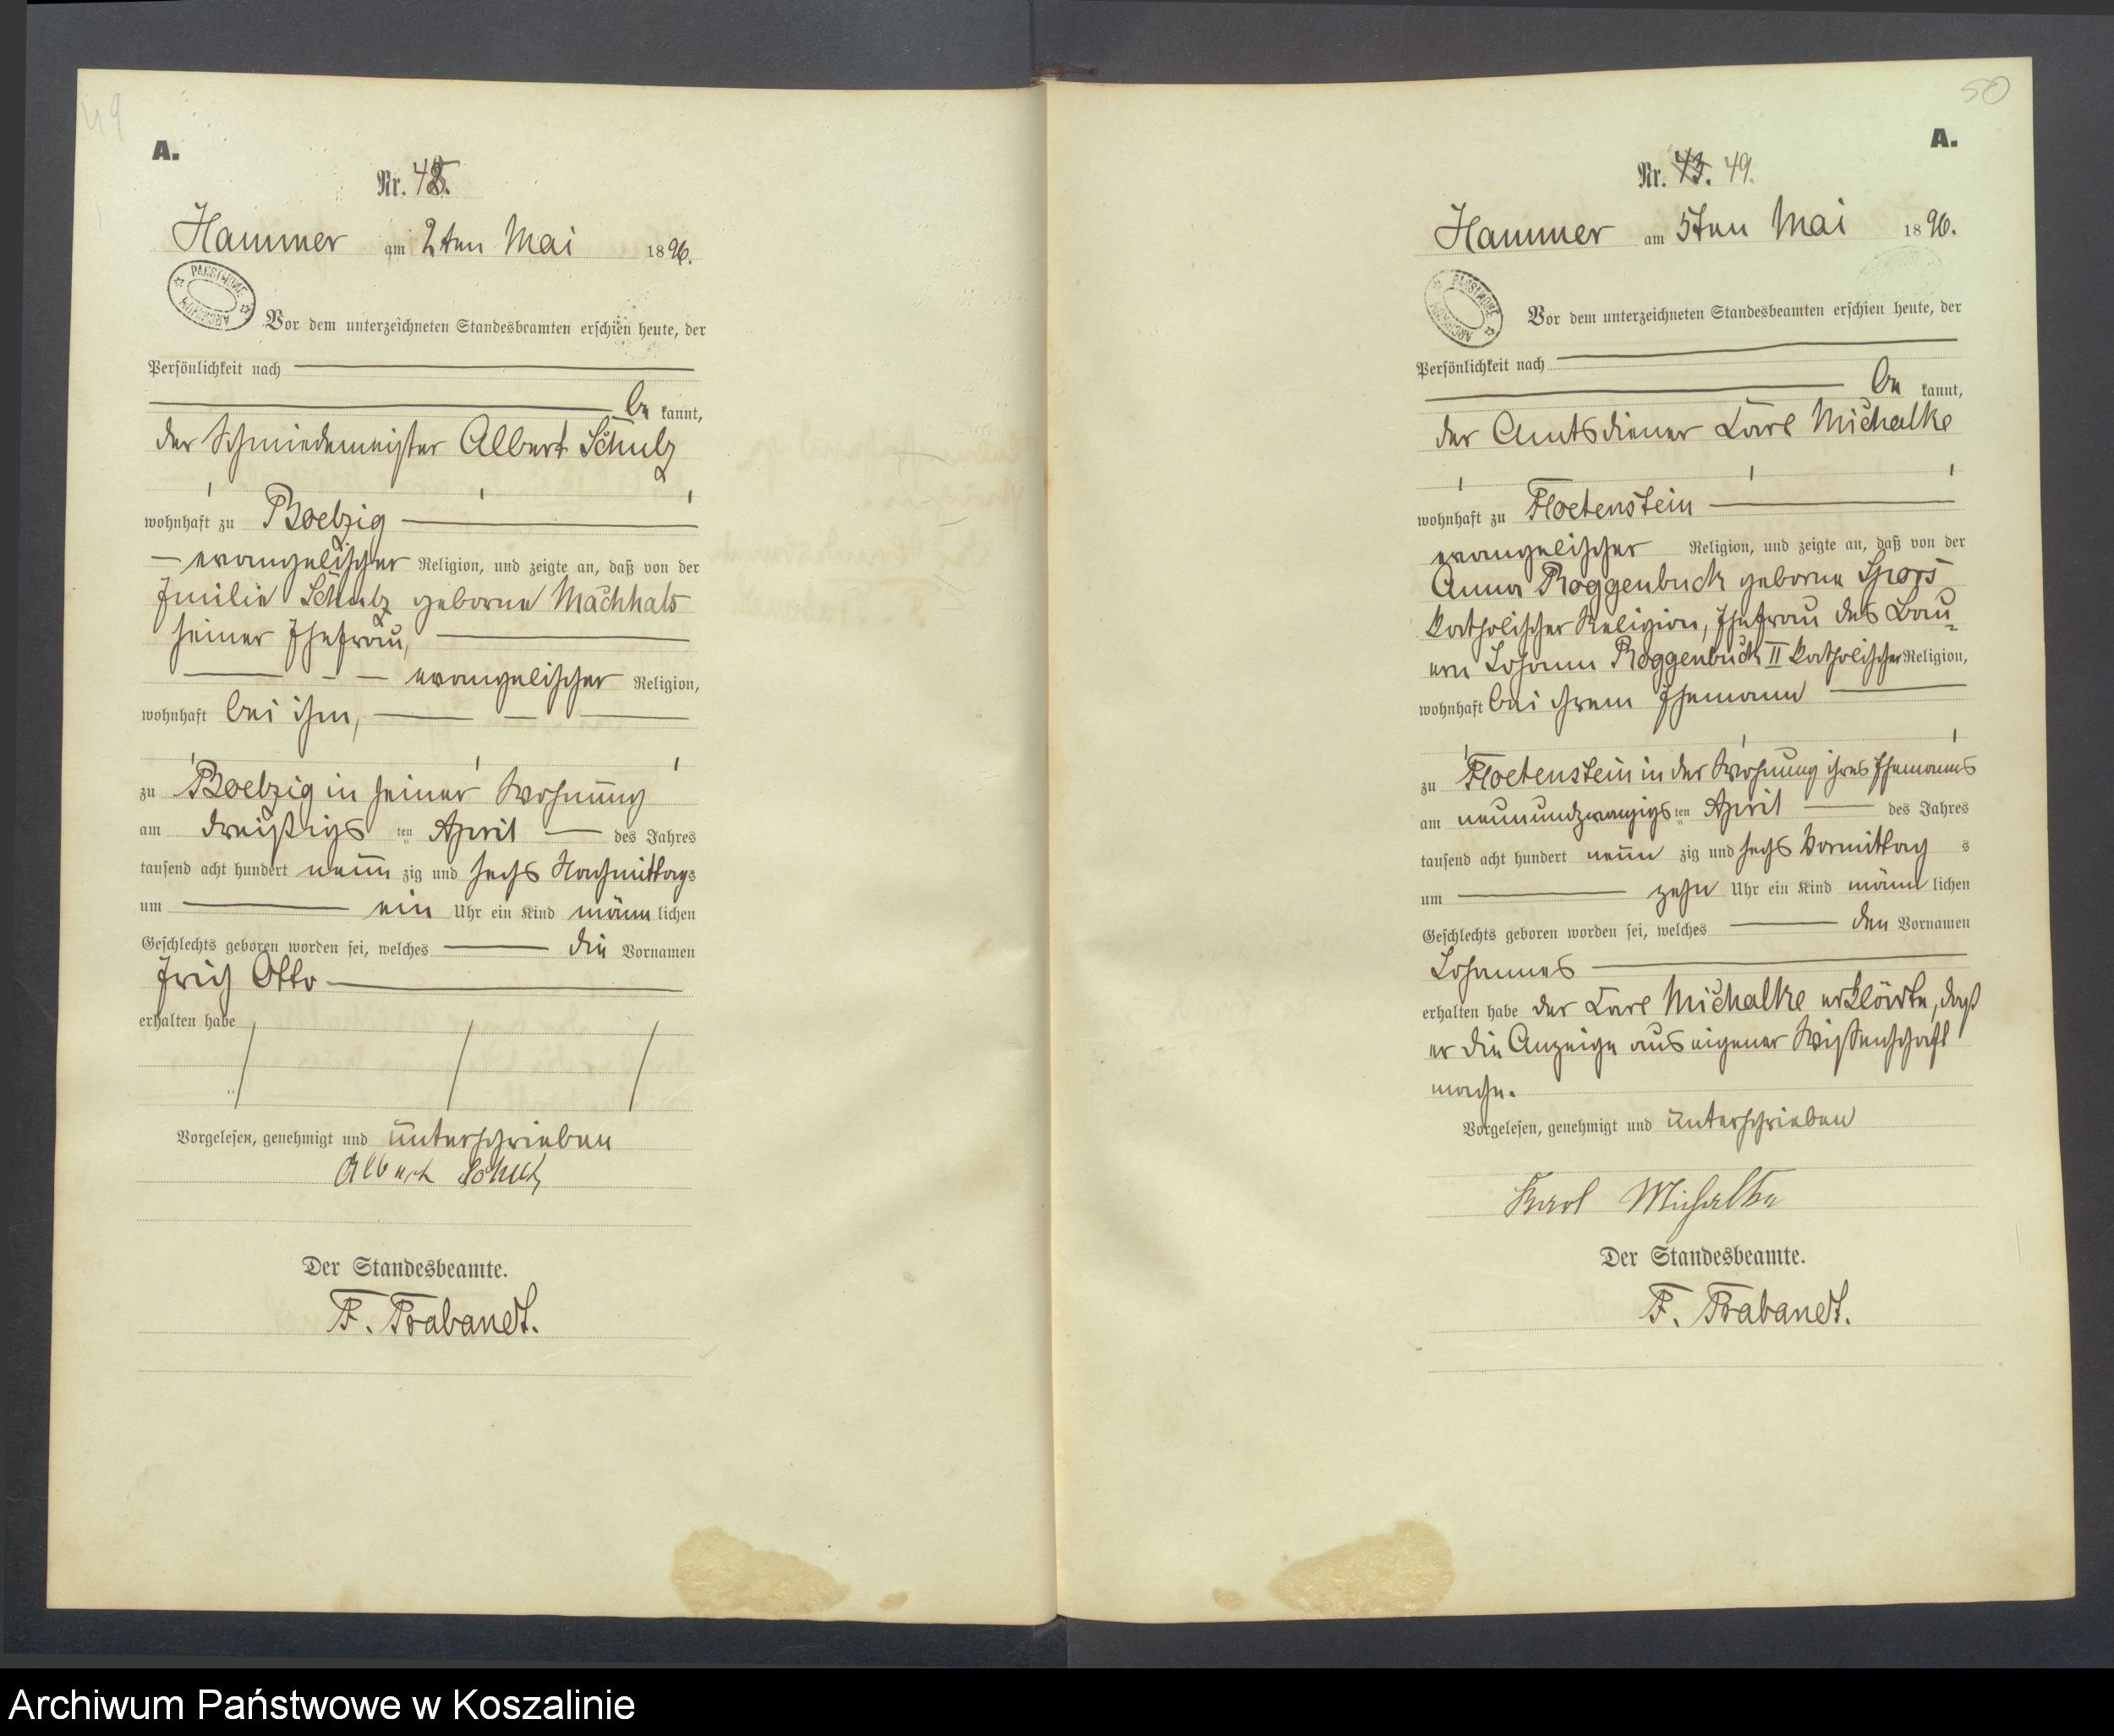 49
A.
Nr. 48.
Hammer am 2ten Mai 1896.
PAŃSTWOWE ARCHIWUM
Vor dem unterzeichneten Standesbeamten erschien heute, der
Persönlichkeit nach
be kannt,
der Schmiedemeister Albert Schulz
wohnhaft zu Boelzig
evangelischer Religion, und zeigte an, daß von der
Emilie Schulz geborne Machhals
seiner Ehefrau,
evangelischer Religion,
wohnhaft bei ihm,
zu Boelzig in seiner Wohnung
am dreißigs ten April des Jahres
tausend acht hundert neun zig und sechs Nachmittags
um ein Uhr ein Kind männ lichen
Geschlechts geboren worden sei, welches die Vornamen
Erich Otto
erhalten habe
Vorgelesen, genehmigt und unterschrieben
Albert Schulz
Der Standesbeamte.
F. Brabandt.
50
A.
Nr. 43. 49.
Hammer am 5ten Mai 1896.
PAŃSTWOWE ARCHIWUM
Vor dem unterzeichneten Standesbeamten erschien heute, der
Persönlichkeit nach
be kannt,
der Amtsdiener Carl Michalke
wohnhaft zu Floetenstein
evangelischer Religion, und zeigte an, daß von der
Anna Roggenbuck geborne Spors
katholischer Religion, Ehefrau des Bau-
ern Johann Roggenbuck II katholischer Religion,
wohnhaft bei ihrem Ehemann
zu Floetenstein in der Wohnung ihres Ehemanns
am neunundzwanzigs ten April des Jahres
tausend acht hundert neun zig und sechs Vormittag s
um zehn Uhr ein Kind männ lichen
Geschlechts geboren worden sei, welches den Vornamen
Johannes
erhalten habe der Carl Michalke erklärte, daß
er die Anzeige aus eigener Wissenschaft
mache.
Vorgelesen, genehmigt und unterschrieben
Karl Michalke
Der Standesbeamte.
F. Brabandt.
Archiwum Państwowe w Koszalinie